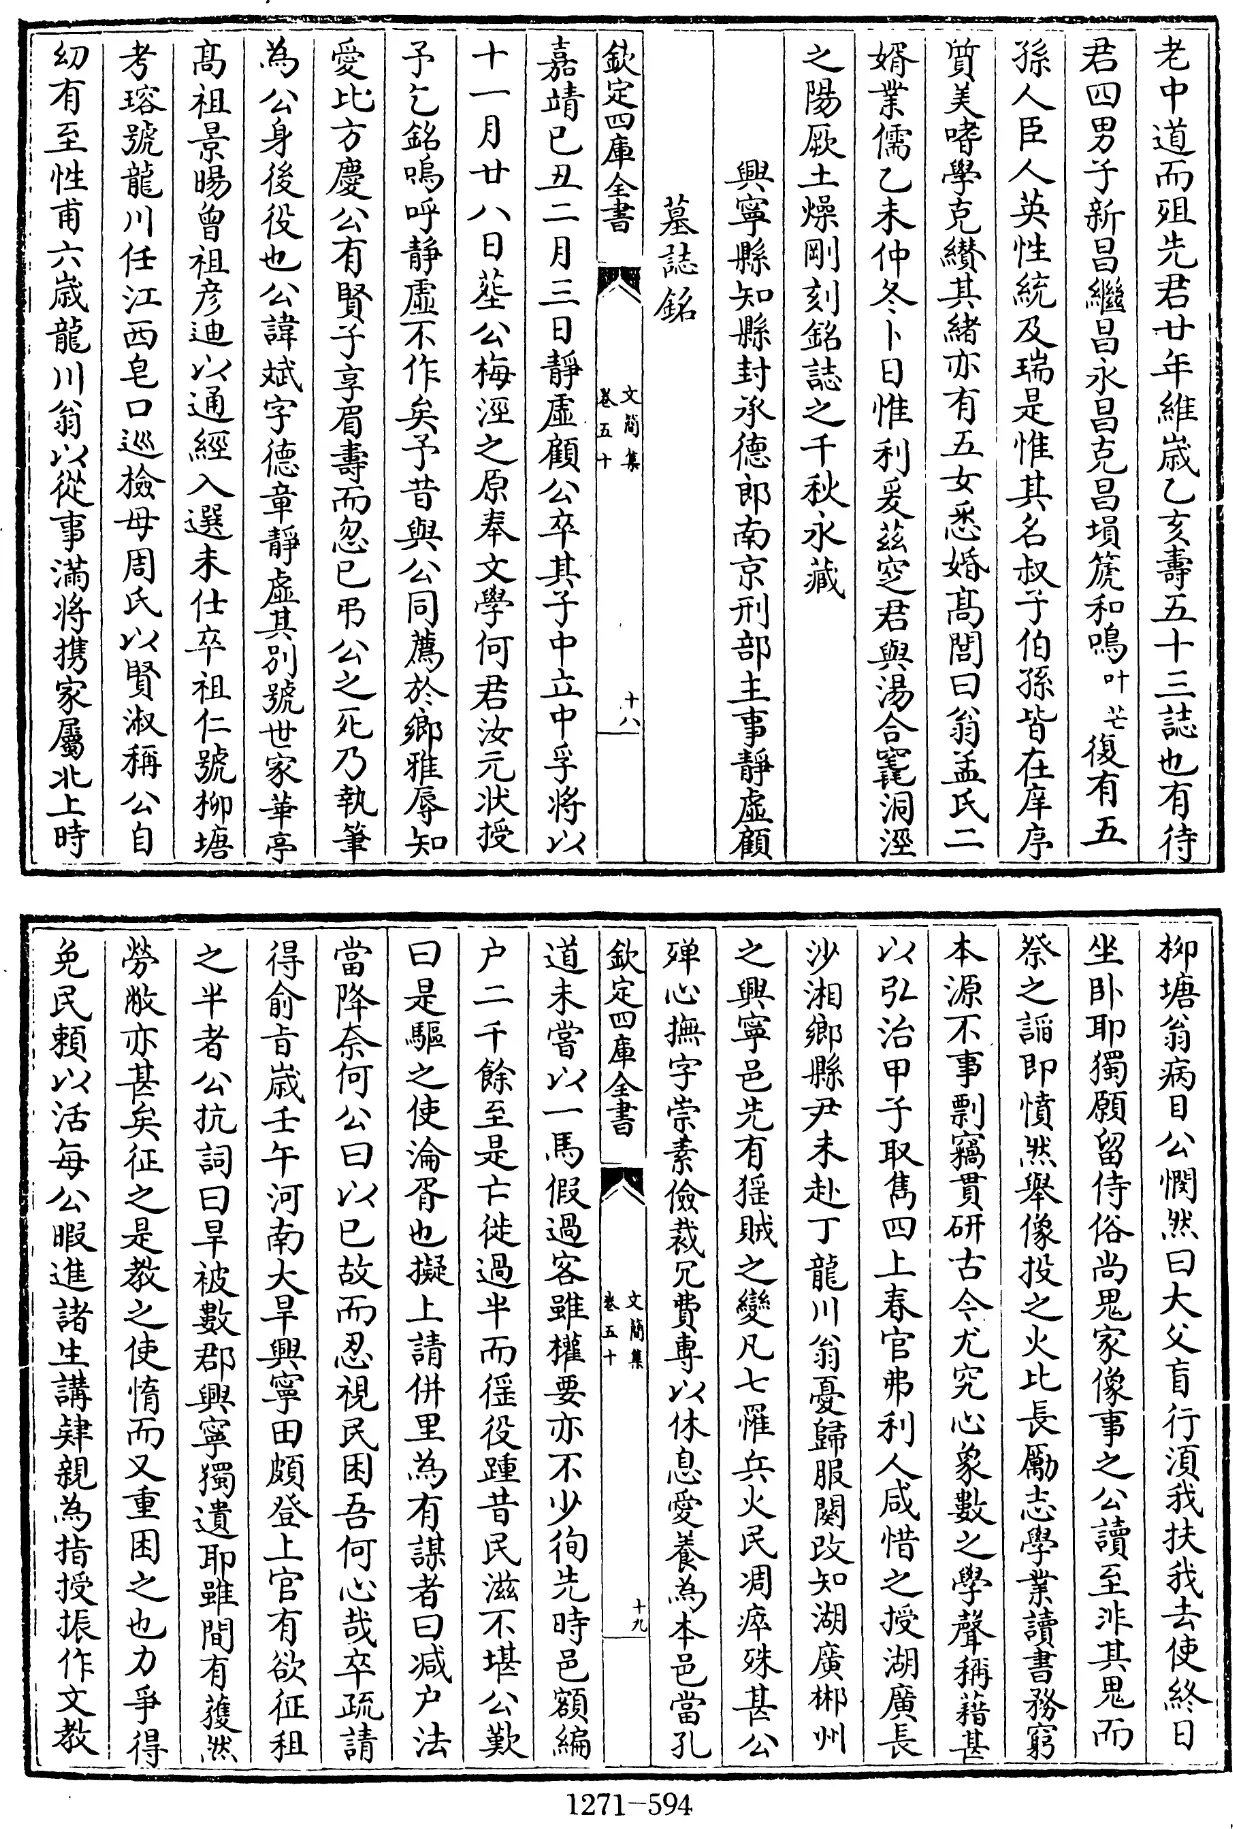 老中道而殂先君廿年維歳乙亥壽五十三誌也有待
君四男子新昌繼昌永昌克昌塤篪和鳴叶芒復有五
孫人臣人英性統及瑞是惟其名叔子伯孫皆在庠序
質美嗜學克纉其緒亦有五女悉婚髙閭曰翁孟氏二
婿業儒乙未仲冬卜日惟利爰兹窆君與湯合窀洞涇
之陽厥土燥剛刻銘誌之千秋永藏
興寧縣知縣封承德郎南京刑部主事靜虛顧
墓誌銘
欽定四庫全書
文簡集
卷五十
十八
嘉靖已丑二月三日靜虛顧公卒其子中立中孚將以
十一月廿八日塟公梅涇之原奉文學何君汝元状授
予乞銘嗚呼靜虛不作矣予昔與公同薦於鄉雅辱知
愛比方慶公有賢子享眉壽而忽已弔公之死乃執筆
為公身後役也公諱斌字德章靜虛其別號世家華亭
髙祖景暘曾祖彦迪以通經入選未仕卒祖仁號栁塘
考瑢號龍川任江西皂口巡檢母周氏以賢淑稱公自
㓜有至性甫六歳龍川翁以從事滿将携家屬北上時
栁塘翁病目公憫然曰大父盲行湏我扶我去使終日
坐卧耶獨願留侍俗尚鬼家像事之公讀至非其鬼而
祭之謟即憤然舉像投之火比長勵志學業讀書務窮
本源不事剽竊貫研古今尤究心象數之學聲稱藉甚
以弘治甲子取雋四上春官弗利人咸惜之授湖廣長
沙湘鄉縣尹未赴丁龍川翁憂歸服闋改知湖廣郴州
之興寧邑先有猺賊之變凡七罹兵火民凋瘁殊甚公
殫心撫字崇素儉裁冗費專以休息愛養為本邑當孔
欽定四庫全書
文簡集
卷五十
十九
道未嘗以一馬假過客雖權要亦不少徇先時邑額編
户二千餘至是亡徙過半而徭役踵昔民滋不堪公歎
曰是驅之使淪胥也擬上請併里為有謀者曰减户法
當降奈何公曰以已故而忍視民困吾何心哉卒疏請
得俞㫖歳壬午河南大旱興寧田頗登上官有欲征租
之半者公抗詞曰旱被數郡興寧獨遺耶雖間有蒦然
勞敝亦甚矣征之是教之使惰而又重困之也力爭得
免民賴以活每公暇進諸生講肄親為指授振作文教